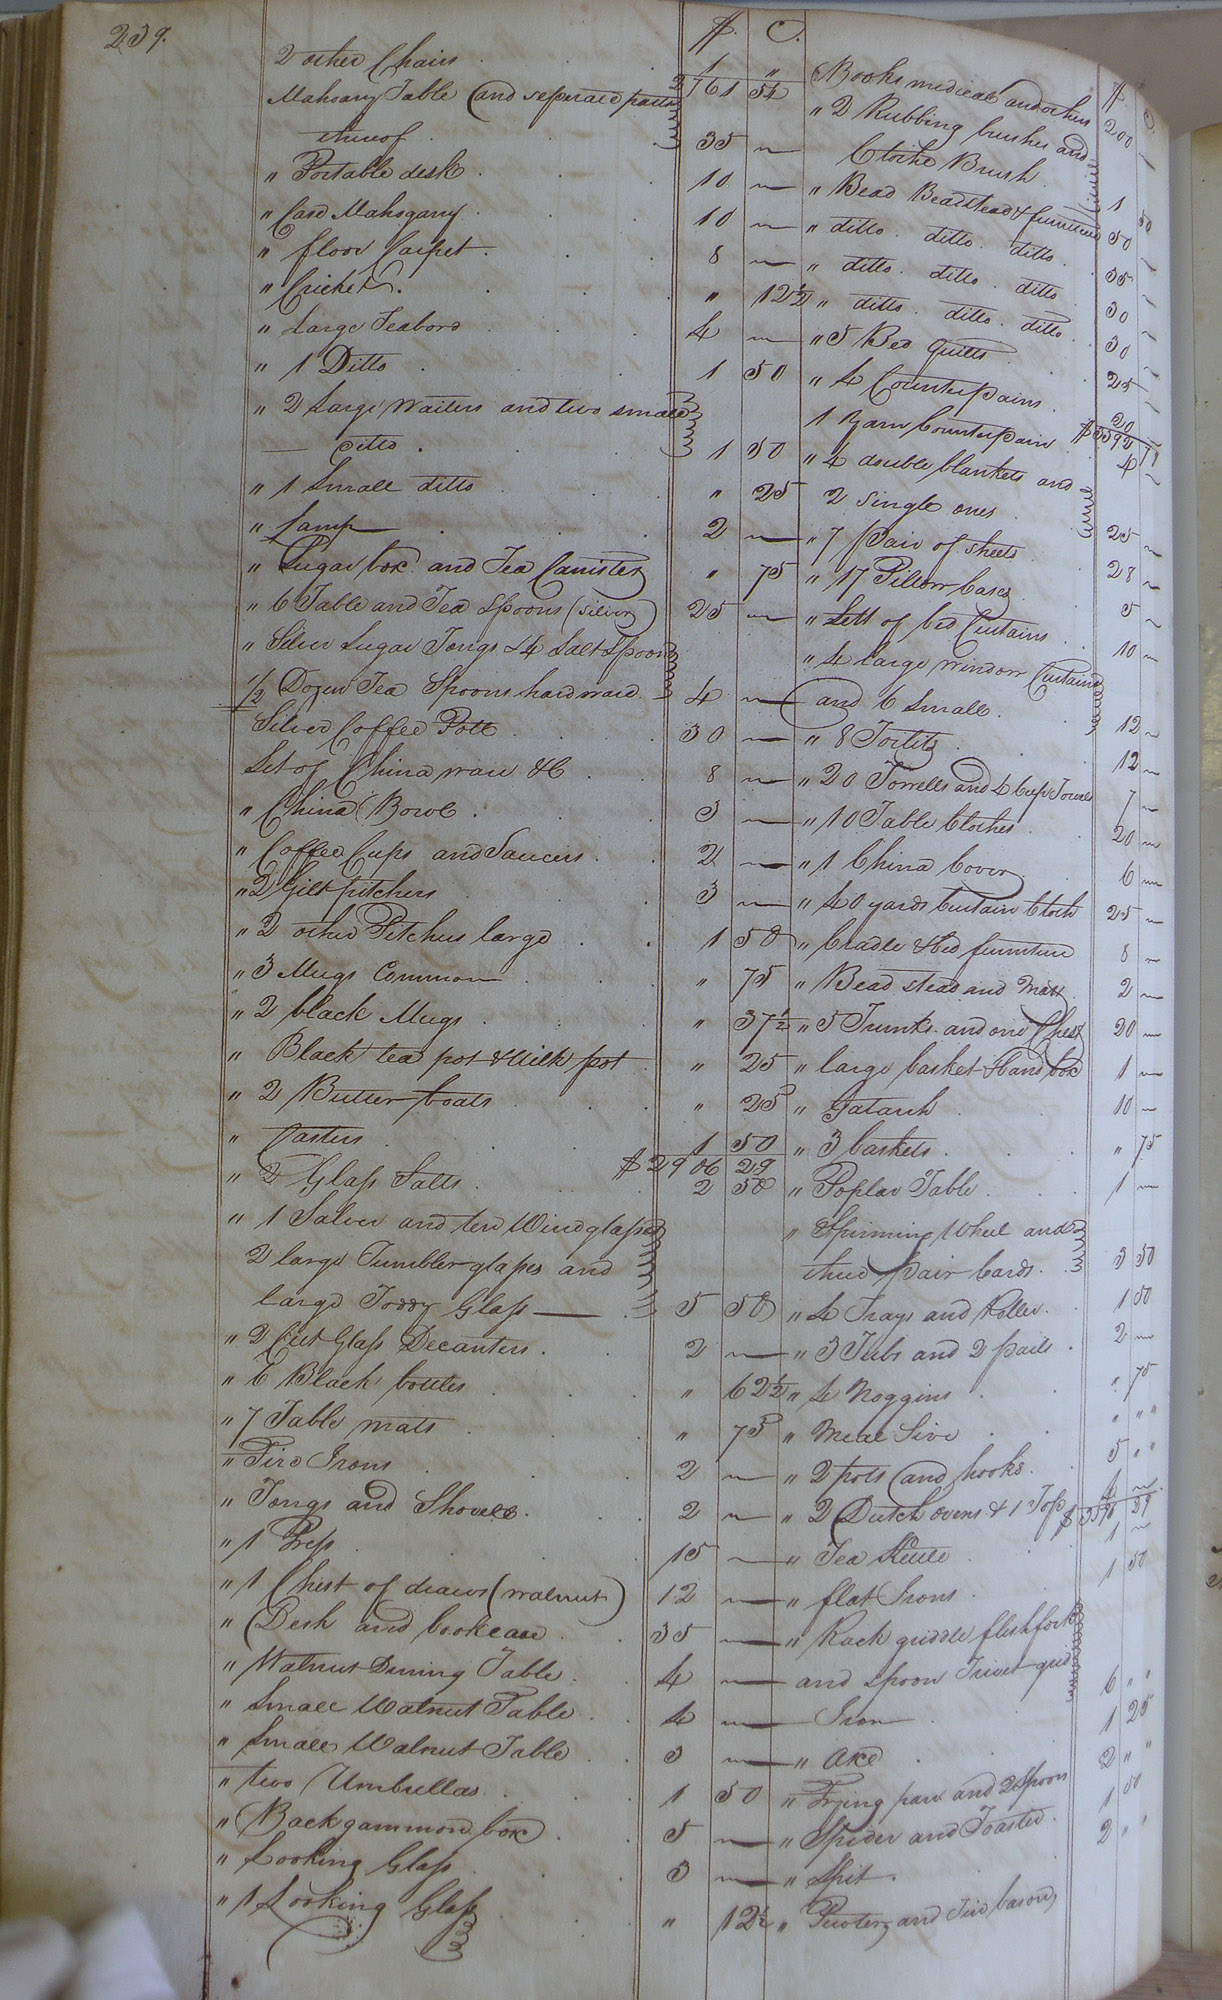 239.
$. C.
2 other Chairs 1 "
2761 54
Mahogany Table (and seperate parts
thereof. 35 —
" Portable desk. 10 —
" Case Mahogany. 10 —
" floor Carpet. 8 —
" Cricket. " 12½
" Large Teabord 4 —
" 1 Ditto 1 50
" 2 Large Waiters and two small
— ditto. 1 50
" 1 Small ditto " 25
" Lamp 2 —
" Sugar box and Tea Canister " 75
" 6 Table and Tea Spoons (silver) 25 —
" Silver Sugar Tongs & 4 Salt Spoons
1/2 Dozen Tea Spoons hardward 4 —
Silver Coffee Pott 30 —
Set of China ware &C 8 —
" China Bowl. 3 —
" Coffee Cups and Saucers. 2 —
" 2 Gilt pitchers 3 —
" 2 other Pitchers large 1 50
" 3 Mugs Common " 75
" 2 black Mugs " 37½
" Black tea pot & Milk pot " 25
" 2 Butter boats " 25
" Casters 1 50
$2906 29
" 2 Glass Salts 2 50
" 1 Salver and ten Wineglasses
2 large Tumbler glasses and
large Toddy Glass — 5 50
" 2 Cut Glass Decanters. 2 —
" 6 Black bottles " 62½
" 7 Table mats " 75
" Fire Irons 2 —
" Tongs and Shovell. 2 —
" 1 Press 15 —
" 1 Chest of draws (walnut) 12 —
" Desk and bookcase 35 —
" Walnut Dining Table. 4 —
" Small Walnut Table 4 —
" Small Walnut Table 3 —
" two Umbrellas 1 50
" Backgammon box 5 —
" Looking Glass 3 —
" 1 Looking Glass " 12½
$. C.
Books medical and others 200 —
" 2 Rubbing brushes and
Clothe Brush 1 50
" Bead Beadstead & furniture 50 —
" ditto. ditto. ditto. 35 —
" ditto. ditto. ditto 30 —
" ditto. ditto. ditto. 30 —
" 5 Bed quilts 25 —
" 4 Counterpains 20 —
1 Yarn Counterpain 4 —
" 4 double blankets and
2 single ones 25 —
" 7 pair of sheets 28 —
" 17 Pillow Cases 5 —
" Sett of bed Curtains 10 —
" 4 large window Curtains
and 6 small. 12 —
" 8 Toilits 12 —
" 20 Towells and 4 Cup Towels 7 —
" 10 Table Clothes 20 —
" 1 China Cover 6 —
" 40 yards Curtain Cloth 25 —
" Cradle & bed furniture 8 —
" Bead stead and Matt 2 —
" 5 Trunks and one Chest 20 —
" large basket & band box 1 —
" Gatarck 10 —
" 3 baskets. " 75
" Poplar Table. 1 —
" Spinning Wheel and
three pair Cards. 3 50
" 4 Trays and Roller. 1 50
" 3 Tubs and 2 pails. 2 —
" 4 Noggins " 75
" Meal Sive " " "
" 2 pots and hooks. 5 " "
" 2 Dutch ovens & 1 Top 4 —
" Tea Kettle 1 —
" flat Irons 1 50
" Rack griddle fleshfork
and spoon Trivet grid
Iron 6 " "
" Axe 1 25
" Frying pan and 2 Spoons 2 " "
" Spider and Toaster. 1 50
" Spit. 2 " "
" Pewter and Tin basons